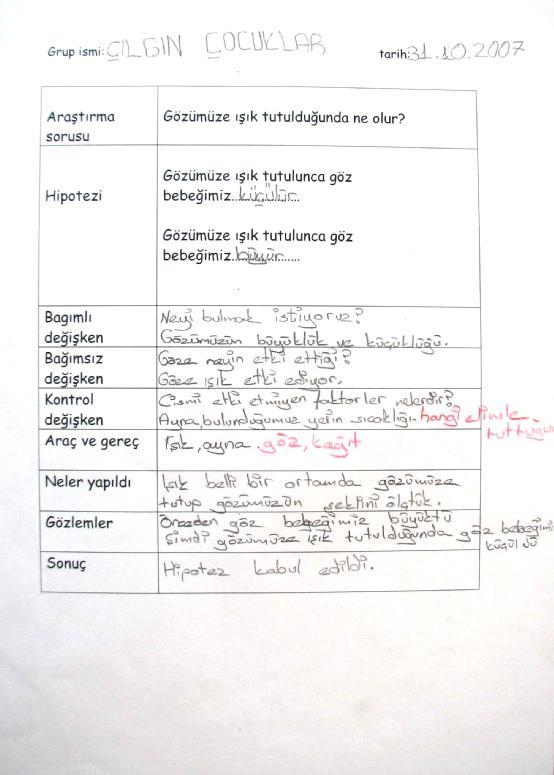 Grup ismi: ÇILGIN ÇOCUKLAR tarih:31.10.2007
Araştırma sorusu
Gözümüze ışık tutulduğunda ne olur?
Hipotezi
Gözümüze ışık tutulunca göz
bebeğimiz..küçülür...
Gözümüze ışık tutulunca göz
bebeğimiz.büyür.....
Bagımlı değişken
Neyi bulmak istiyoruz?
Gözümüzün büyüklük ve küçüklüğü.
Bağımsız değişken
Göze neyin etki ettiği?
Göze ışık etki ediyor.
Kontrol değişken
Cismi etki etmiyen faktörler nelerdir?
Ayna, bulunduğumuz yerin sıcaklığı. hangi elimle
tuttuğum
Araç ve gereç
Işık, ayna. göz, kağıt
Neler yapıldı
Işık belli bir ortamda gözümüze
tutup gözümüzün şeklini ölçtük.
Gözlemler
Önceden göz bebeğimiz büyüktü
Şimdi gözümüze ışık tutulduğunda göz bebeğimiz
küçüldü
Sonuç
Hipotez kabul edildi.